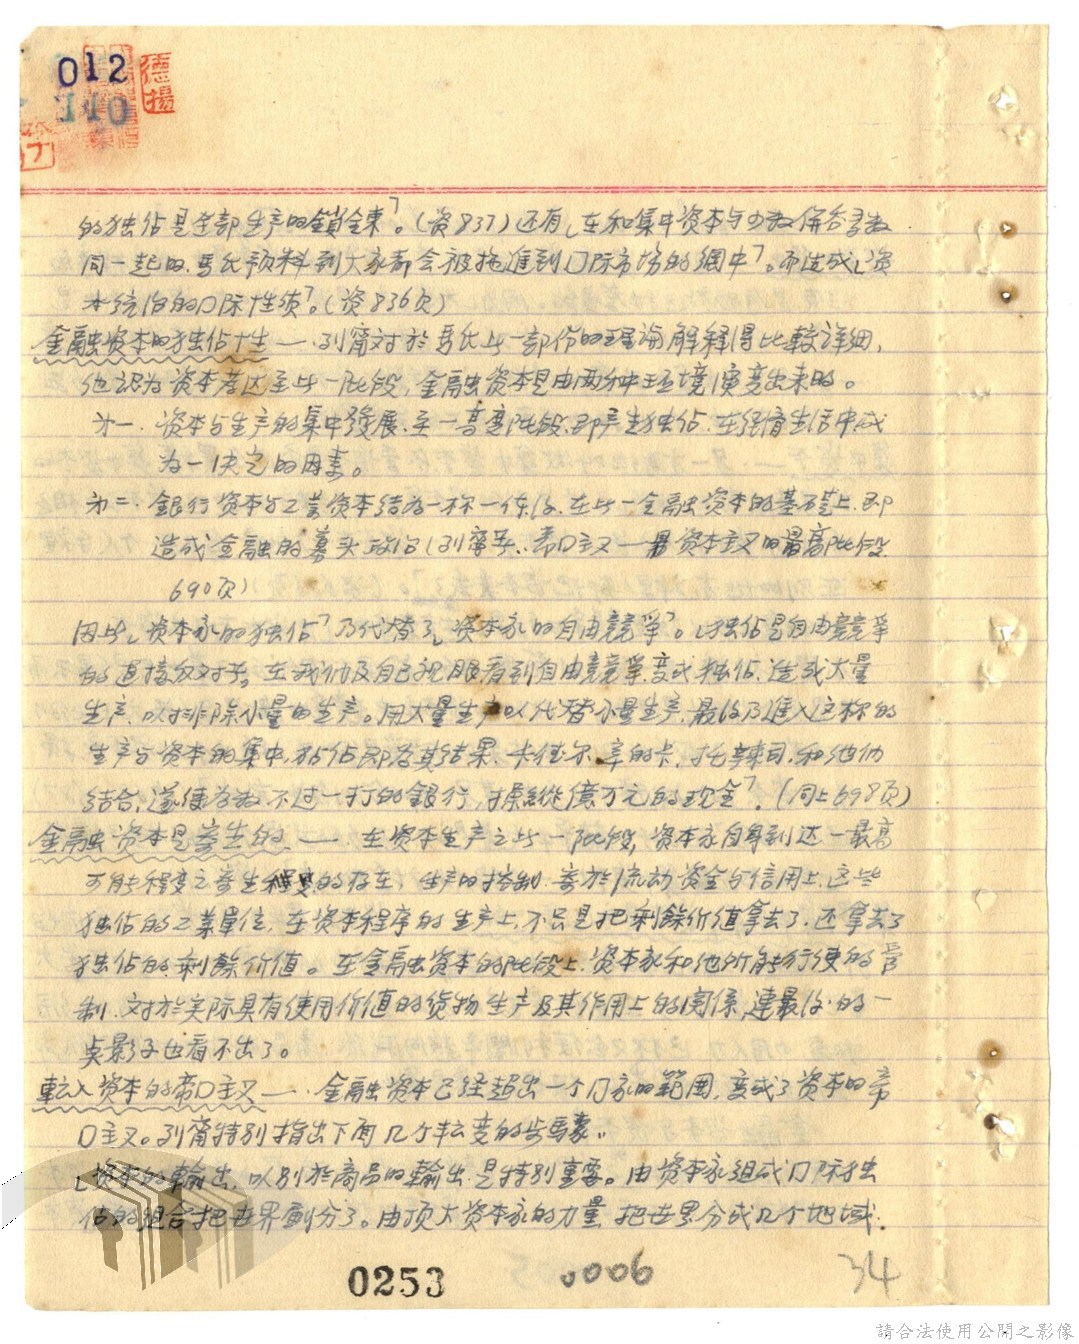 012
110
德揚
7
的独佔是全部生产的鎖鍊﹁。(资837)还有﹂在和集中资本与少数併吞多数
同一起的、馬氏預料到大家都会被拖進到囗际市场的網中﹁。而造成﹂资
本統治的囗际性质﹁。(资836页)
金融资本的独佔性——列甯对於馬氏此一部份的理論解释得比較详細,
他認为资本荖达至此一阶段,金融资本是由两种环境演变出来的。
第一.资本与生产的集中發展.至一高度阶段.即产生独佔.在经济生活中成
为一决定的因素。
第二.銀行资本与工業资本结为一体.在此一金融资本的基础上.即
造成金融的寡头政治(列甯:帝囗主义——资本主义的最高阶段
690页)
因此﹂资本家的独佔﹁乃代替了﹂资本家的自由競爭﹁。﹂独佔是自由競爭
的直接反对者,在我们及自己视眼看到自由競爭.变成独佔.造成大量
生产.以排除小量的生产。用大量生产以代替小量生产.最後乃進入这样的
生产与资本的集中,独佔即为其结果、卡佳尔.辛的卡.托辣司.和他们
结合,遂便为数不过一打的銀行,操縱億万元的现金﹁.(同上698页)
金融资本是寄生的.——.在资本生产之此一阶段,资本家自身到达一最高
可能程度之寄生的存在,生产的控制.寄於流动资金与信用上.这些
独佔的工業單位.在资本程序的生产上.不只是把剩餘价值拿去了.还拿去了
独佔的剩餘价值。在金融资本的阶段上.资本家和他所能行使的管
制.对於实际具有使用价值的货物生产及其作用上的関係,連最後的一
点影子也看不出了。
転入资本的帝囗主义——.金融资本已经超出一个囗家的範囲,变成了资本的帝
囗主义。列甯特别指出下面几个転变的步骤:
﹂资本的輸出,以别於商品的輸出.是特别重要。由资本家組成囗际独
佔的組合把世界劃分了。由顶大资本家的力量.把世界分成几个地域.
0253
0006
34
請合法使用公開之影像